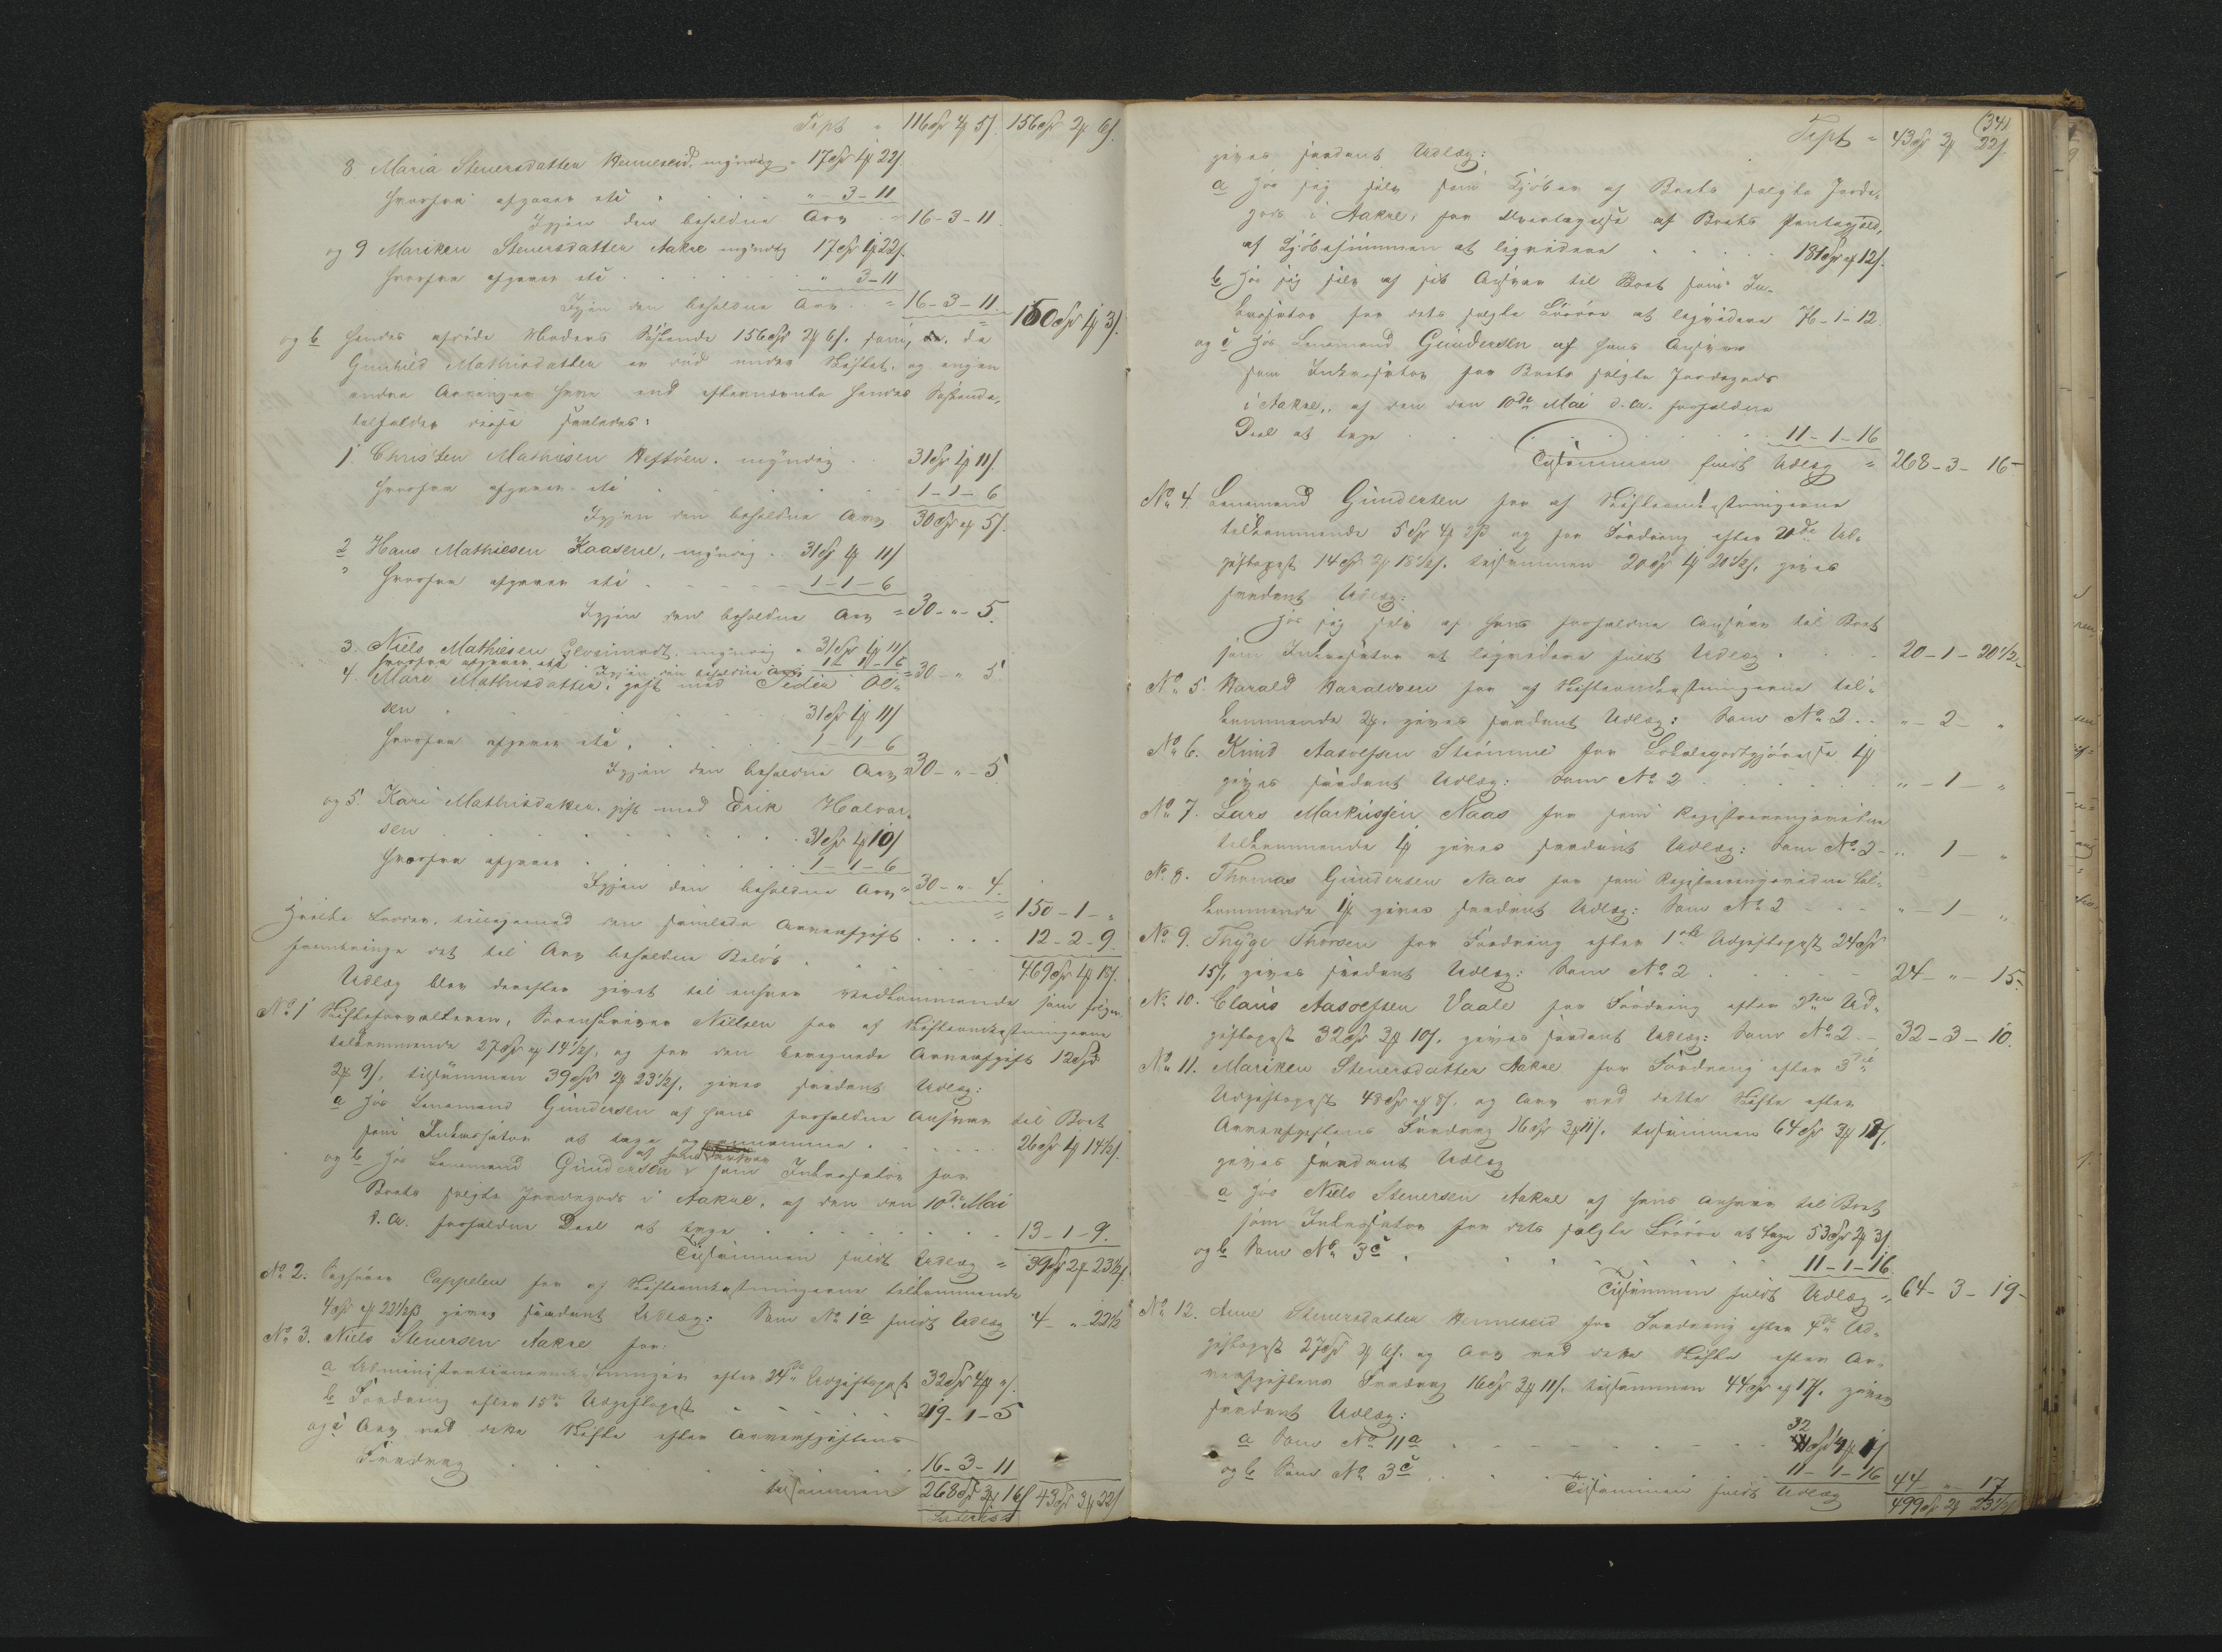 Tspt = 116 Spd 4 ₰ 5 s. 156 Spd 2 ₰ 6 s.
8 Maria Steuersdatter Henneseid, myndig = 17 Spd 1 ₰ 22 s.
hvorfra afgaaer etc . . . " - 3 - 11
Igjen den beholdne Arv = 16 - 3 - 11.
og 9 Mariken Steuersdatter Aakre myndig 17 Spd 1 ₰ 22 s.
hvorfra afgaaer etc . . . " 3 - 11
Igjen den beholdne Arv . = 16 - 3 - 11. = 150 Spd 1 ₰ 3 s.
og b hendes afdøde Moders Søskende 156 Spd 2 ₰ 6 s. som, da
Gunhild Mathisdatter er død under Skiftet, og ingen
andre Arvinger have end efternævnte hendes Søskende,
tilfalder disse saaledes:
1. Christen Mathisen Heftøen, myndig . . 31 Spd 1 ₰ 11 s.
hvorfra afgaaer etc . . . 1 - 1 - 6
Igjen den beholdne Arv 30 Spd " ₰ 5 s.
2 Hans Mathiesen Kaasene, myndig . 31 Spd 1 ₰ 11 s
hvorfra afgaaer etc . . . 1 - 1 - 6
Igjen den beholdne Arv = 30 - " - 5.
3. Niels Mathiesen myndig = 31 Spd 1 ₰ 11 s
hvorfra afgaaer etc 1 - 1 - 6 Igjen den beholdne Arv = 30 - " 5.
4. Mari Mathisdatter, gift med Peder Ol-
sen . . . 31 Spd 1 ₰ 11 s
hvorfra afgaaer etc . . . 1 - 1 - 6
Igjen den beholdne Arv = 30 - " - 5
og 5. Kari Mathisdatter, gift med Erik Halvor-
sen . . . 31 Spd 1 ₰ 10 s
hvorfra afgaaer . . . 1 - 1 - 6
Igjen den beholdne Arv = 30 - " - 4.
= 150 - 1 - "
Hvilke Lodder, tilligemed den samlede Arveafgift . . . . 12 - 2 - 9.
frembringe det til Arv beholdne Beløb . . . 469 Spd 1 ₰ 18 s.
Udlæg blev derefter givet til enhver Vedkommende som følger:
No 1 Skifteforvalteren, Sorenskriver Nielsen for af Skifteomkostningerne
tilkommende 27 Spd " ₰ 14 1/2 s, og for den beregnede Arveafgift 12 Spd
2 ₰ 9 s, tilsammen 39 Spd 2 ₰ 23 1/2 s, gives saadant Udlæg:
a Hos Lensmand Gundersen af hans forfaldne Ansvar til Boet
som Inkassator at tage og . . . 26 Spd 1 ₰ 14 1/2 s.
og b Hos Lensmand Gundersen af hans Ansvar som Inkassator for
Boets solgte Jordegods i Aakre, af den den 10de Mai
d. A. forfaldne Deel at tage . . . 13 - 1 - 9.
Tilsammen fuldt Udlæg = 39 Spd 2 ₰ 23 1/2 s.
No 2. Sagfører Cappelen for af Skifteomkostningerne tilkommende
4 Spd " ₰ 22 1/2 ß gives saadant Udlæg: Som No 1a fuldt Udlæg 4 - " 22 1/2
No 3. Niels Steuersen Aakre for:
a Administrationsomkostninger efter 24de Udgiftspost 32 Spd 4 ₰ " s.
b Fordring efter 15de Udgiftspost . . . 219 - 1 - 5
og c Arv ved dette Skifte efter Arveafgiftens
Fradrag . . . 16 - 3 - 11
tilsammen 268 Spd 3 ₰ 16 s 43 Spd 3 ₰ 22 s
(341
Tspt = 43 Spd 3 ₰ 22 s.
gives saadant Udlæg:
a Hos sig selv som Kjøber af Boets solgte Jorde-
gods i Aakre, for Overtagelse af Boets Pantegjæld,
af Kjøbesummen at liqvidere . . . 181 Spd " ₰ 12 s.
b Hos sig selv af sit Ansvar til Boet som In-
kassator for dets solgte Løsøre at liqvidere 76 - 1 - 12
og c Hos Lensmand Gundersen af hans Ansvar
som Inkassator for Boets solgte Jordegods
i Aakre, af den den 10de Mai d. A. forfaldne
Deel at tage . . . 11 - 1 - 16
Tilsammen fuldt Udlæg = 268 - 3 - 16 -
No 4. Lensmand Gundersen for af Skifteomkostningerne
tilkommende 5 Spd 4 ₰ 2 ß og for Fordring efter 21de Ud-
giftspost 14 Spd 2 ₰ 18 1/2 s. tilsammen 20 Spd 1 ₰ 20 1/2 s, gives
saadant Udlæg:
Hos sig selv af hans forfaldne Ansvar til Boet
som Inkassator at liqvidere fuldt Udlæg . . . 20 - 1 - 20 1/2 -
No 5. Harald Haraldsen for af Skifteomkostningerne til-
kommende 2 ₰. gives saadant Udlæg: Som No 2 . . " - 2 - "
No 6. Knud Aasolfsen Strømme for Lokalegodtgjørelse 1 ₰
gives saadant Udlæg: Som No 2 . . . " - 1 - "
No 7. Lars Markussen Naas for som Registreringsvidne
tilkommende 1 ₰ gives saadant Udlæg: Som No 2 - " 1 - "
No 8. Thomas Gundersen Naas for som Registreringsvidne til-
kommende 1 ₰ gives saadant Udlæg: Som No 2 - - - " - 1 - "
No 9. Thyge Thorsen for Fordring efter 1ste Udgiftspost 24 Spd
15 s, gives saadant Udlæg: Som No 2 . . . 24 - " - 15.
No 10. Claus Aasolfsen Vaale for Fordring efter 2den Ud-
giftspost 32 Spd 3 ₰ 10 s. gives saadant Udlæg: Som No 2 - 32 - 3 - 10.
No 11. Mariken Steuersdatter Aakre for Fordring efter 3die
Udgiftspost 48 Spd " ₰ 8 s. og Arv ved dette Skifte efter
Arveafgiftens Fradrag 16 Spd 3 ₰ 11 s. tilsammen 64 Spd 3 ₰ 19 s.
gives saadant Udlæg
a Hos Niels Steuersen Aakre af hans Ansvar til Boet
som Inkassator for dets solgte Løsøre at tage 53 Spd 2 ₰ 3 s
og b Som No 3c . . . 11 - 1 - 16
Tilsammen fuldt Udlæg = 64 - 3 - 19 -
No 12. Anne Steuersdatter Henneseid for Fordring efter 4de Ud-
giftspost 27 Spd 2 ₰ 6 s. og Arv ved dette Skifte efter Ar-
veafgiftens Fradrag 16 Spd 3 ₰ 11 s. tilsammen 44 Spd " ₰ 17 s. gives
saadant Udlæg:
a Som No 11a . . . 32 Spd 4 ₰ 1 s
og b Som No 3c . . . 11 - 1 - 16
Tilsammen fuldt Udlæg 44 - " - 17
499 Spd 2 ₰ 23 1/2 s